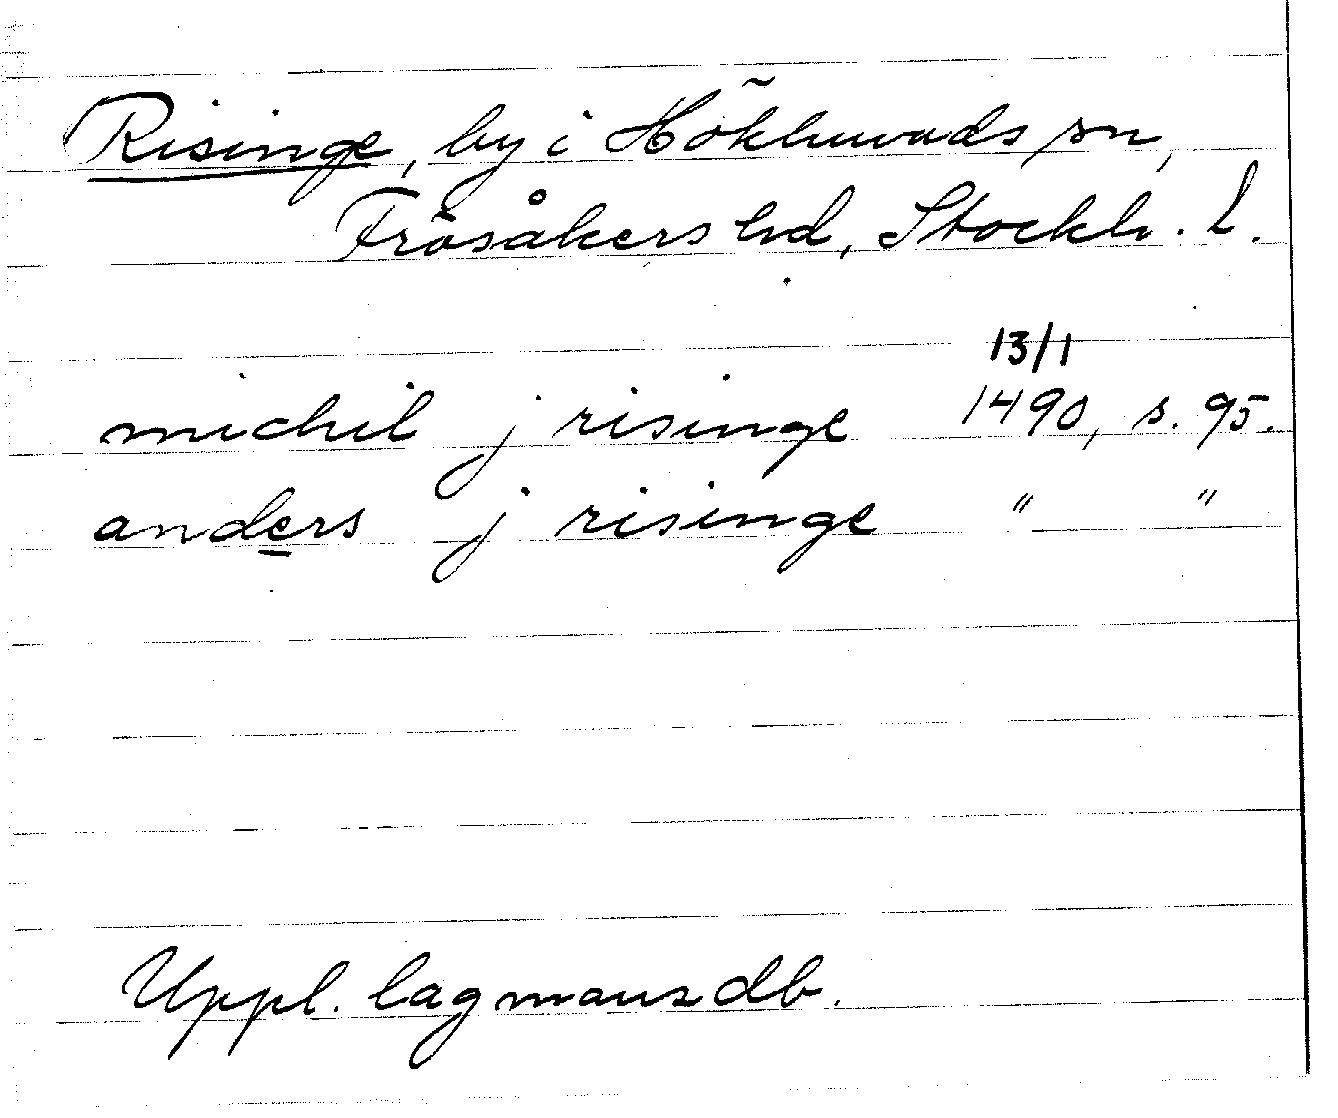 Risinge, by i Hökhuvuds sn,
Frösåkers hd, Stockh. l.
13/1
michil j risinge 1490, s. 95.
anders j risinge " "
Uppl. lagmansdb.